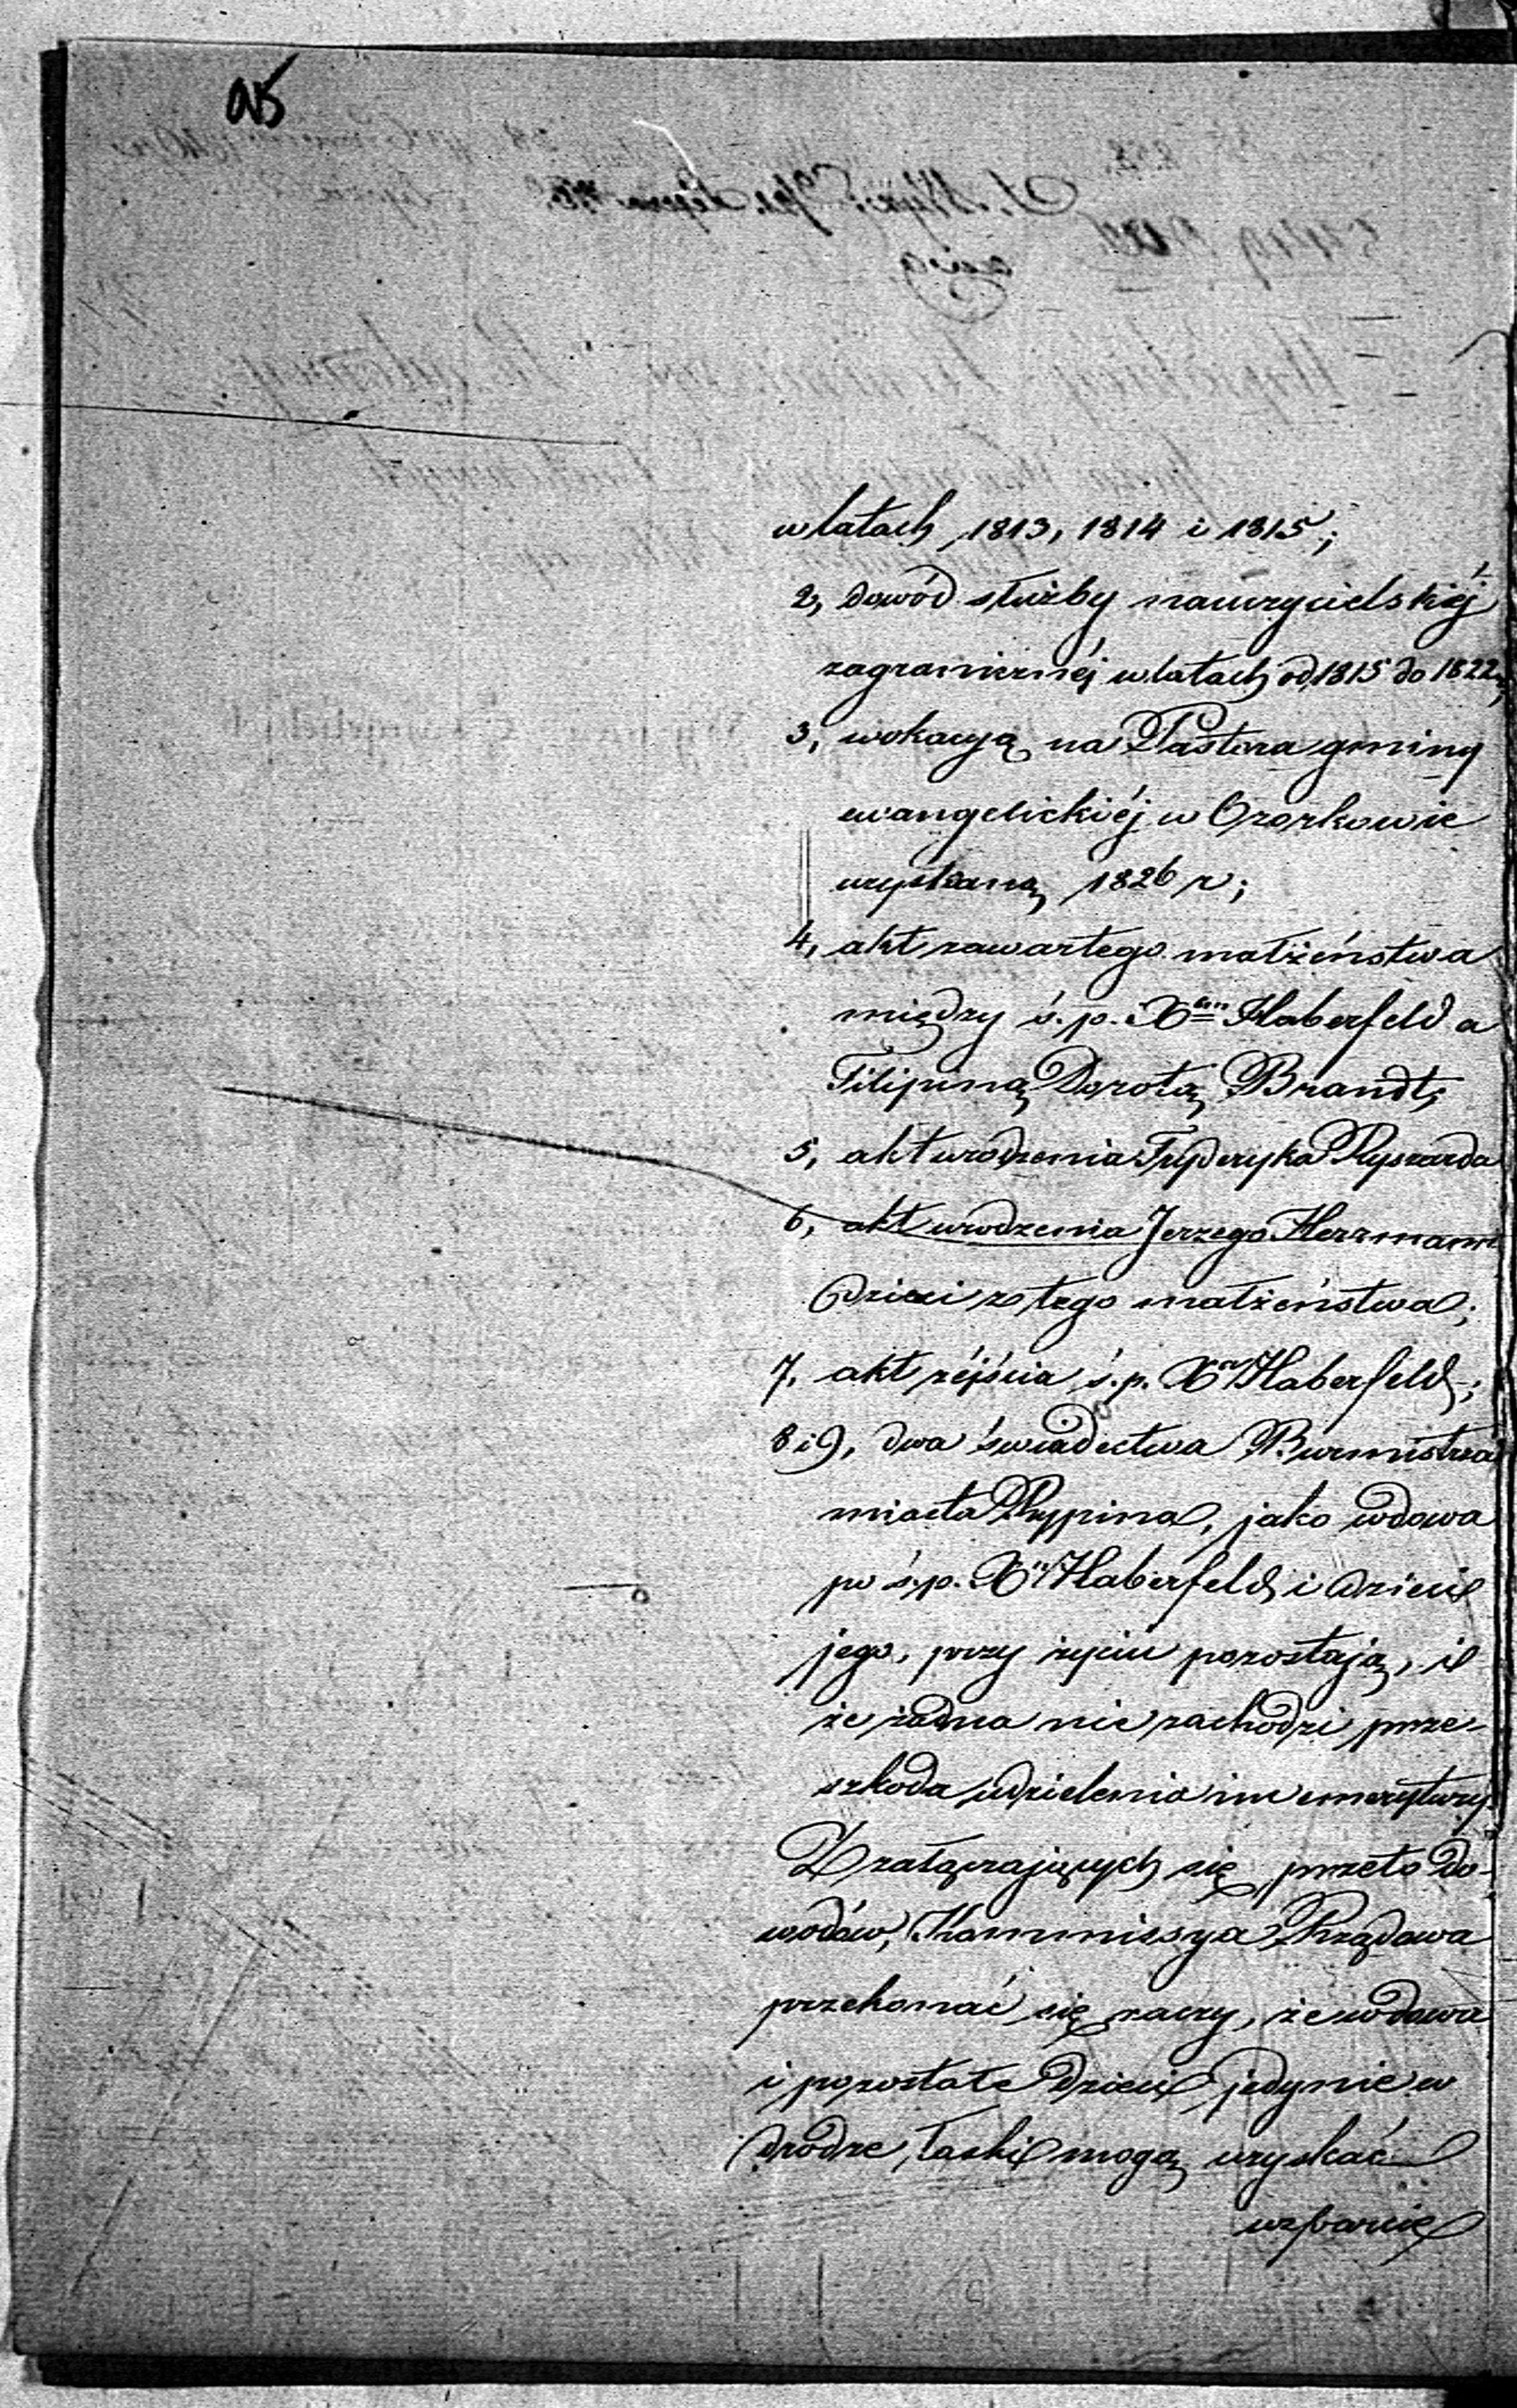 w latach 1813, 1814 i 1815;
2, dowód służby nauczycielskiéj
zagranicznéj w latach od 1815 do 1822,
3, wokacyą na Pastora gminy
ewangelickiéj w Ozorkowie
uzyskaną 1826 r;
4, akt zawartego małżeństwa
między ś. p. Xem Haberfeld a
Filipiną Dorotą Brandt;
5, akt urodzenia Fryderyka Ryszarda
6, akt urodzenia Jerzego Herrmann
dzieci z tego małżeństwa;
7, akt zéjścia ś. p. Xa Haberfeld;
8 i 9, dwa świadectwa Burmistrza
miasta Rypina, jako wdowa
po ś. p. Xu Haberfeld i dzieci
jego, przy życiu pozostają, i
że żadna nie zachodzi prze-
szkoda udzielenia im emerytury
Z załączających się przeto do-
wodów, Kommissya Rządowa
przekonać się raczy, że wdowa
i pozostałe dzieci jedynie w
drodze łaski mogą uzyskać
wsparcie